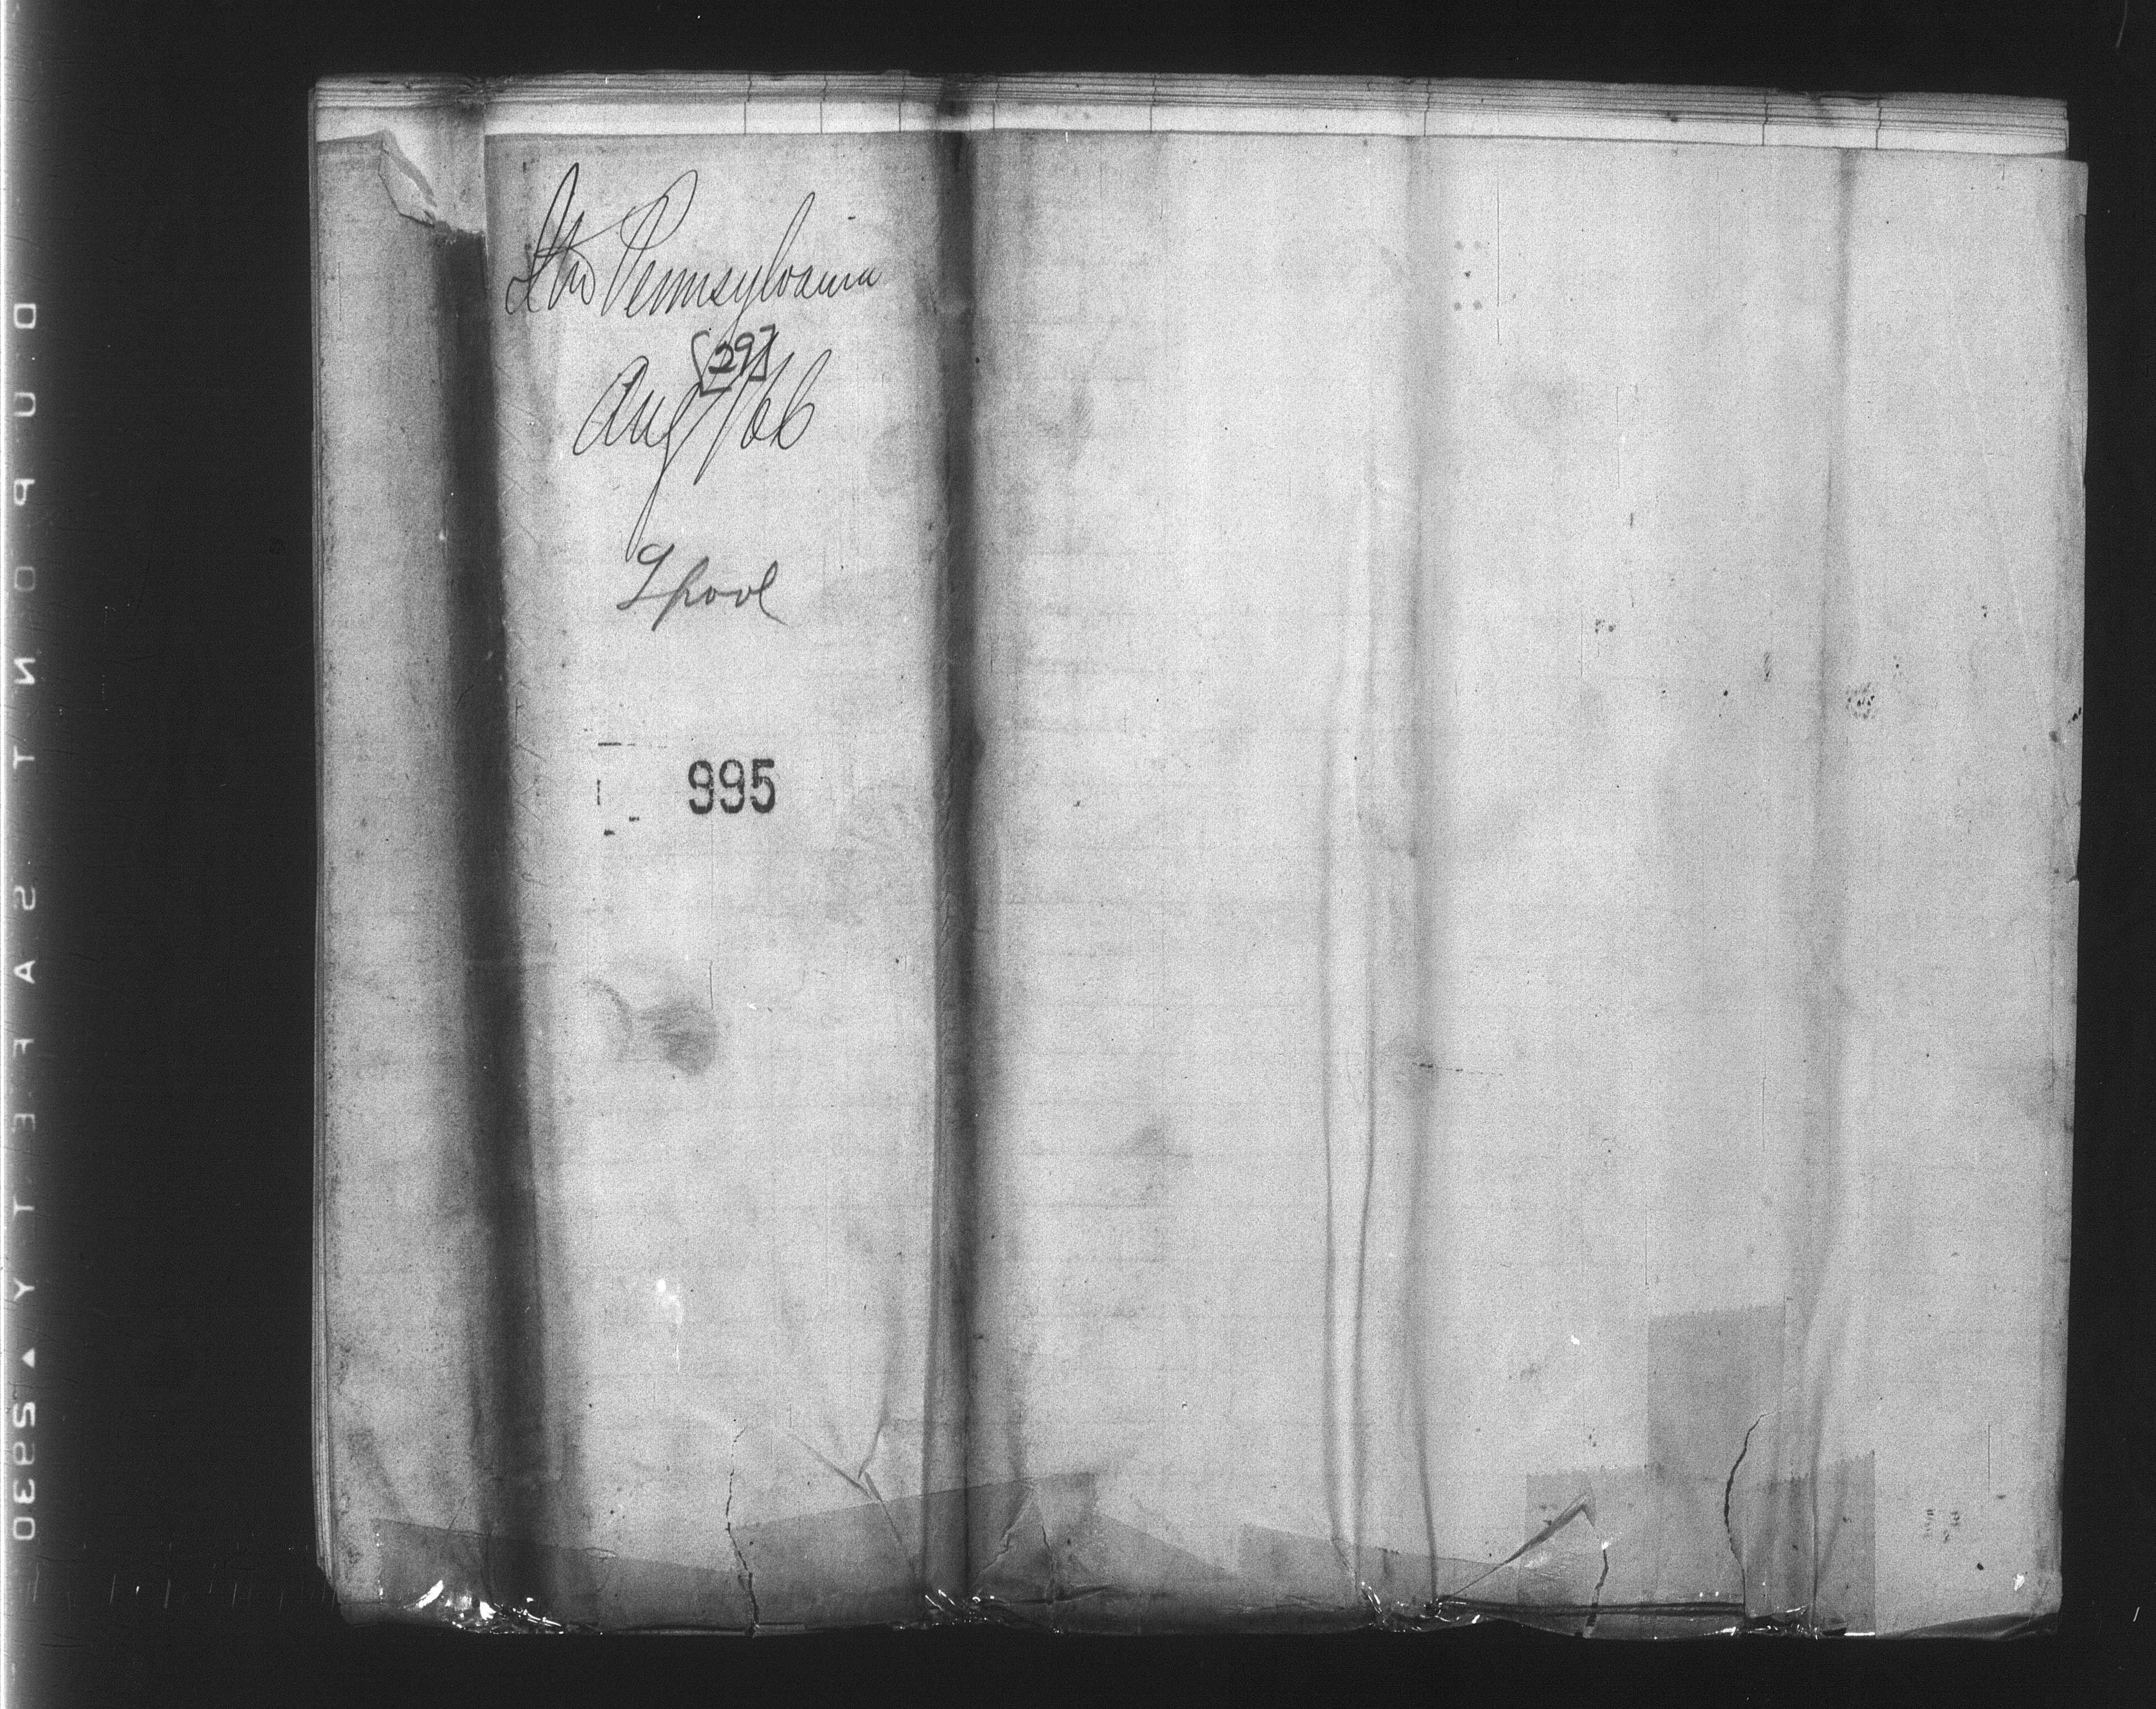 Str Pennsylvania
297
Aug 7/06
Lpool
995
DUPONT SAFETY ▲ 2930